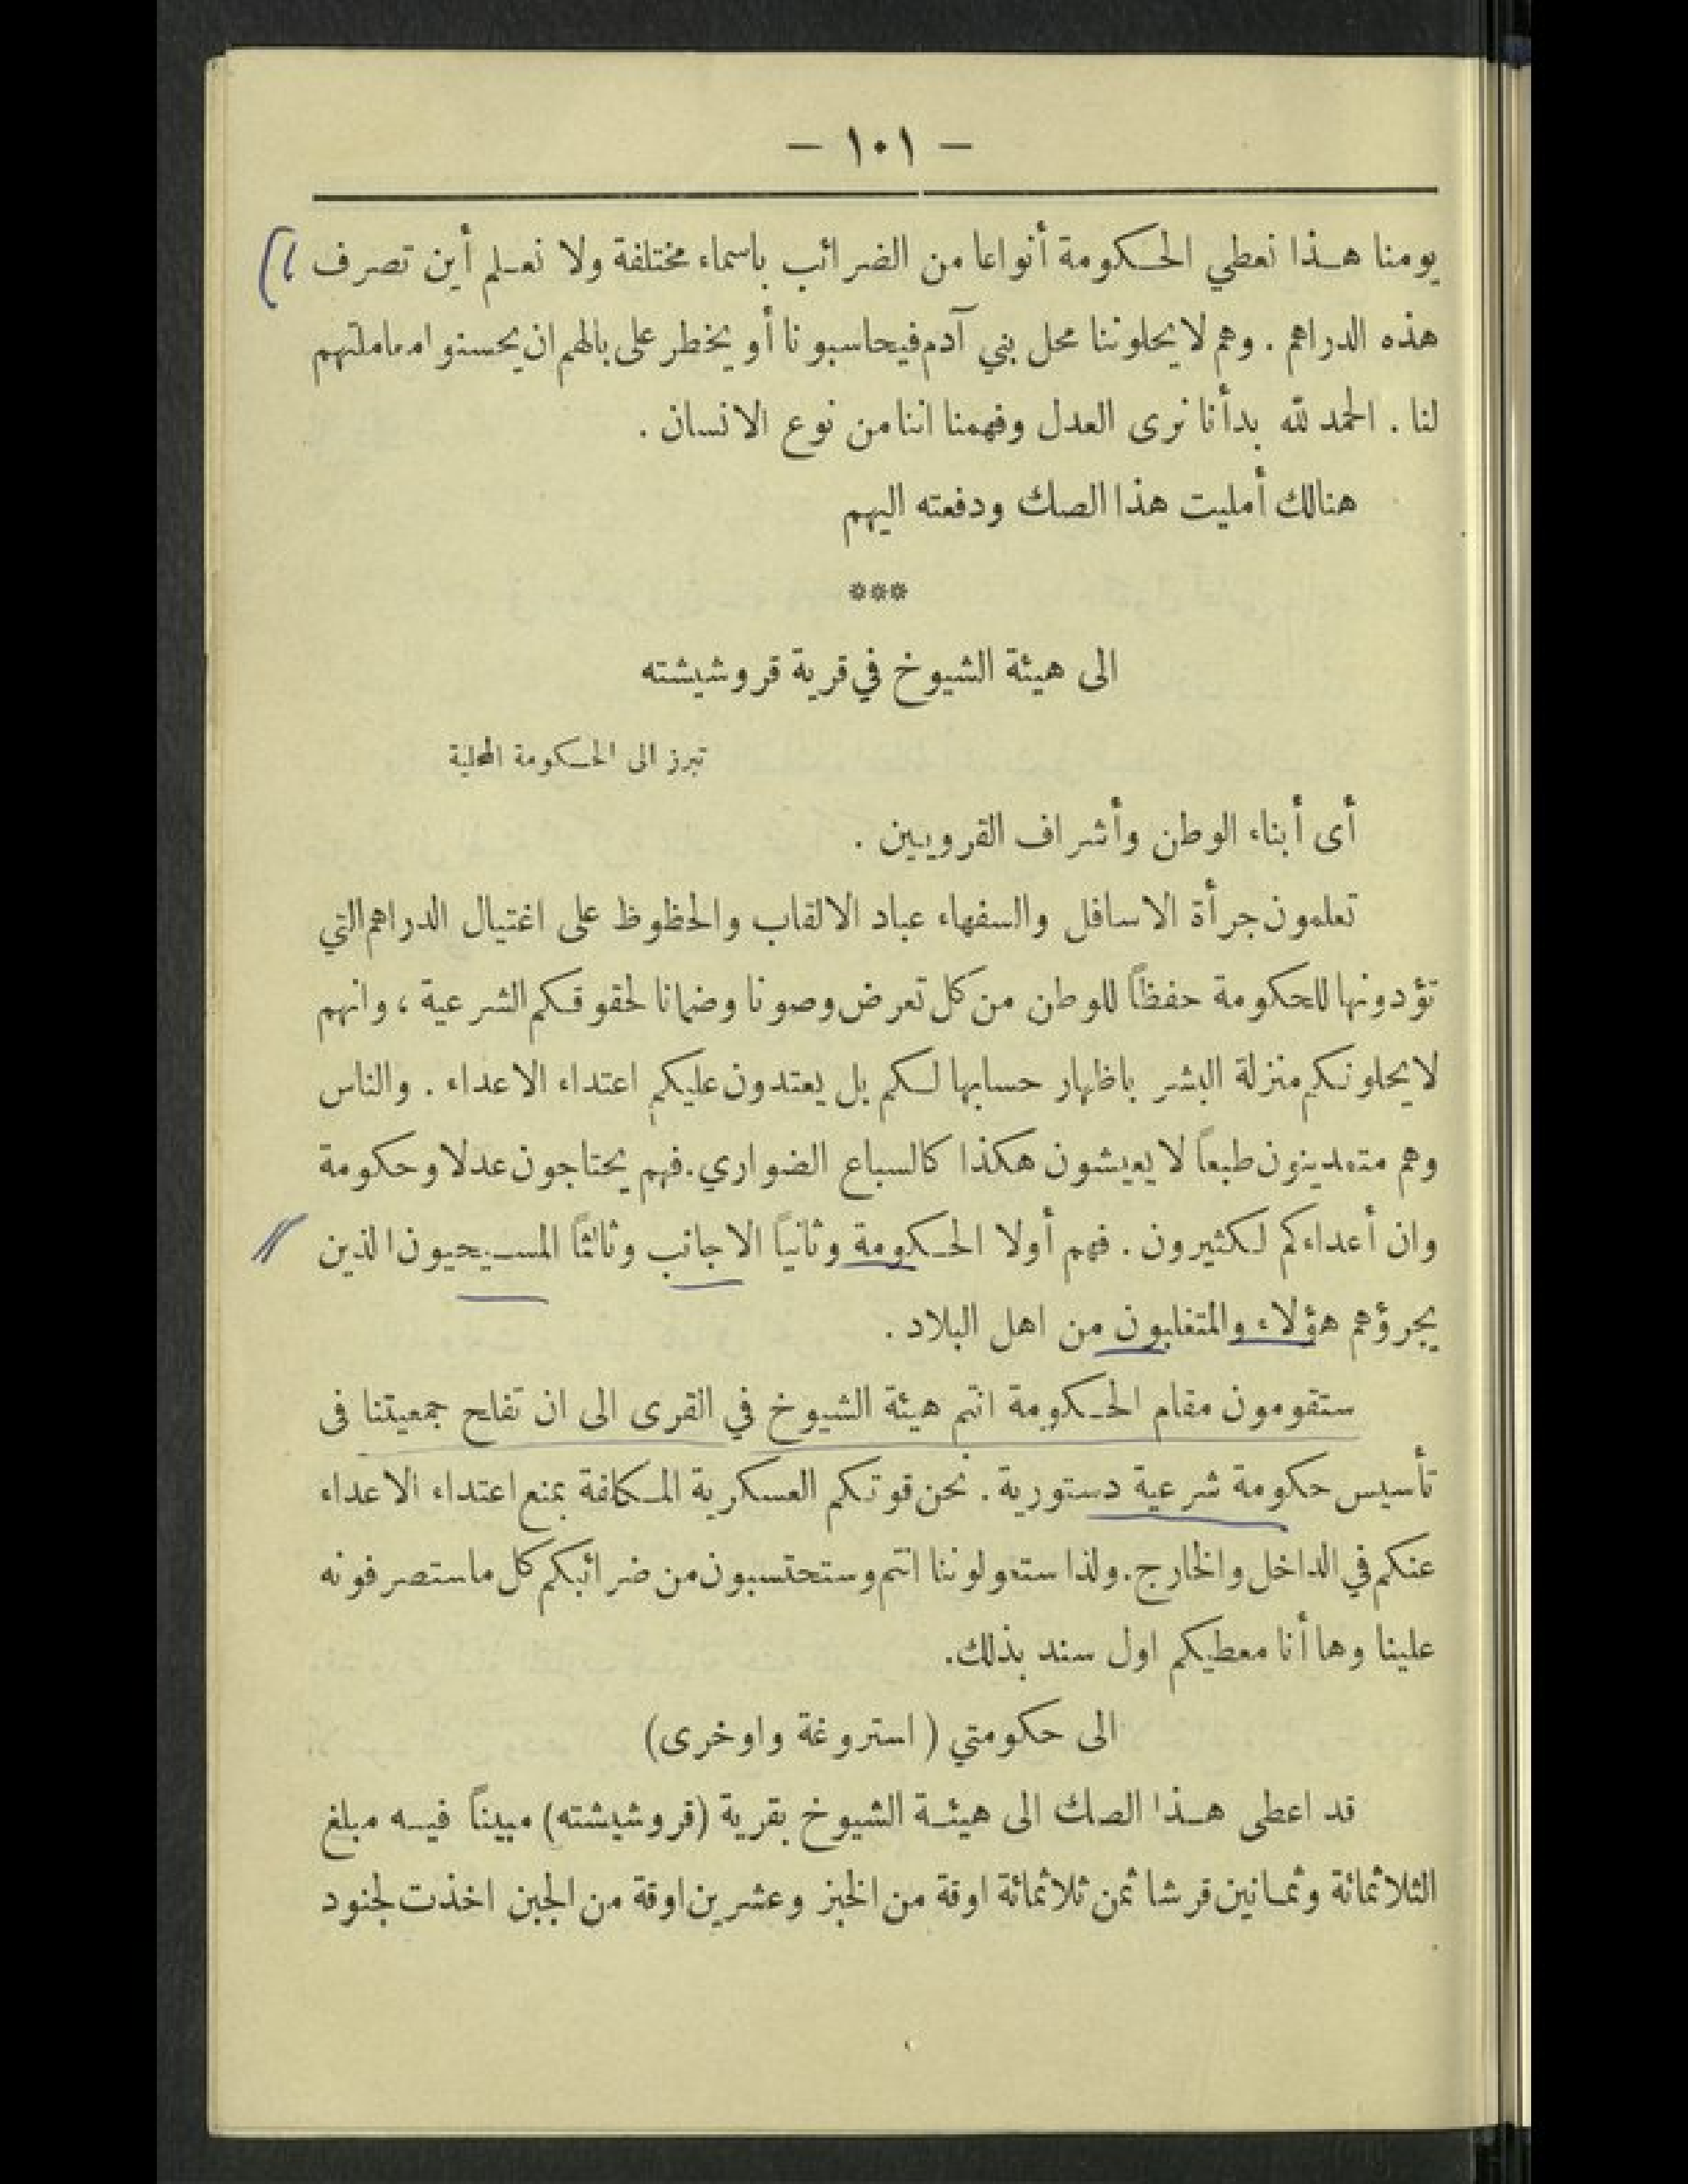 — ١٠١ —
يومنا هذا نعطي الحكومة أنواعا من الضرائب باسماء مختلفة ولا نعلم أين تصرف
هذه الدراهم . وهم لا يحلوننا محل بني آدم فيحاسبونا أو يخطر على بالهم ان يحسنوا معاملتهم
لنا . الحمد لله بدأنا نرى العدل وفهمنا اننا من نوع الانسان .
هنالك أمليت هذا الصك ودفعته اليهم
***
الى هيئة الشيوخ في قرية قروشيشته
تبرز الى الحكومة المحلية
أى أبناء الوطن وأشراف القرويين .
تعلمون جرأة الاسافل والسفهاء عباد الالقاب والحظوظ على اغتيال الدراهم التي
تؤدونها للحكومة حفظاً للوطن من كل تعرض وصونا وضمانا لحقوقكم الشرعية ، وانهم
لا يحلونكم منزلة البشر باظهار حسابها لكم بل يعتدون عليكم اعتداء الاعداء . والناس
وهم متمدينون طبعاً لا يعيشون هكذا كالسباع الضواري . فهم يحتاجون عدلا وحكومة
وان أعداءكم لكثيرون . فهم أولا الحكومة وثانياً الاجانب وثالثاً المسيحيون الذين
يجرؤهم هؤلاء والمتغلبون من اهل البلاد .
ستقومون مقام الحكومة انتم هيئة الشيوخ في القرى الى ان تفلح جمعيتنا فى
تأسيس حكومة شرعية دستورية . نحن قوتكم العسكرية المكلفة بمنع اعتداء الاعداء
عنكم في الداخل والخارج . ولذا ستعولوننا انتم وستحتسبون من ضرائبكم كل ما ستصرفونه
علينا وها أنا معطيكم اول سند بذلك .
الى حكومتي ( استروغة واوخرى )
قد اعطى هذا الصك الى هيئة الشيوخ بقرية (قروشيشته) مبيناً فيه مبلغ
الثلاثمائة وثمانين قرشا ثمن ثلاثمائة اوقة من الخبز وعشرين اوقة من الجبن اخذت لجنود